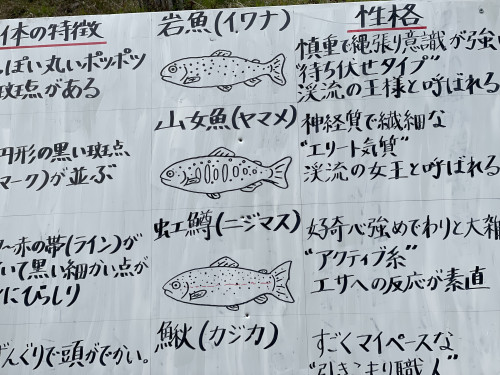 体の特徴
岩魚(イワナ)
性格
っぽい丸いポツポツ
斑点がある
慎重で縄張り意識が強い
"待ち伏せタイプ"
渓流の王様と呼ばれる
円形の黒い斑点
マーク)が並ぶ
山女魚(ヤマメ)
神経質で繊細な
"エリート気質"
渓流の女王と呼ばれる
〜赤の帯(ライン)が
いて黒い細かい点が
にびっしり
虹鱒(ニジマス)
好奇心強めでわりと大雑
"アクティブ系"
エサへの反応が素直
んぐりで頭がでかい。
鰍(カジカ)
すごくマイペースな
"引きこもり職人"